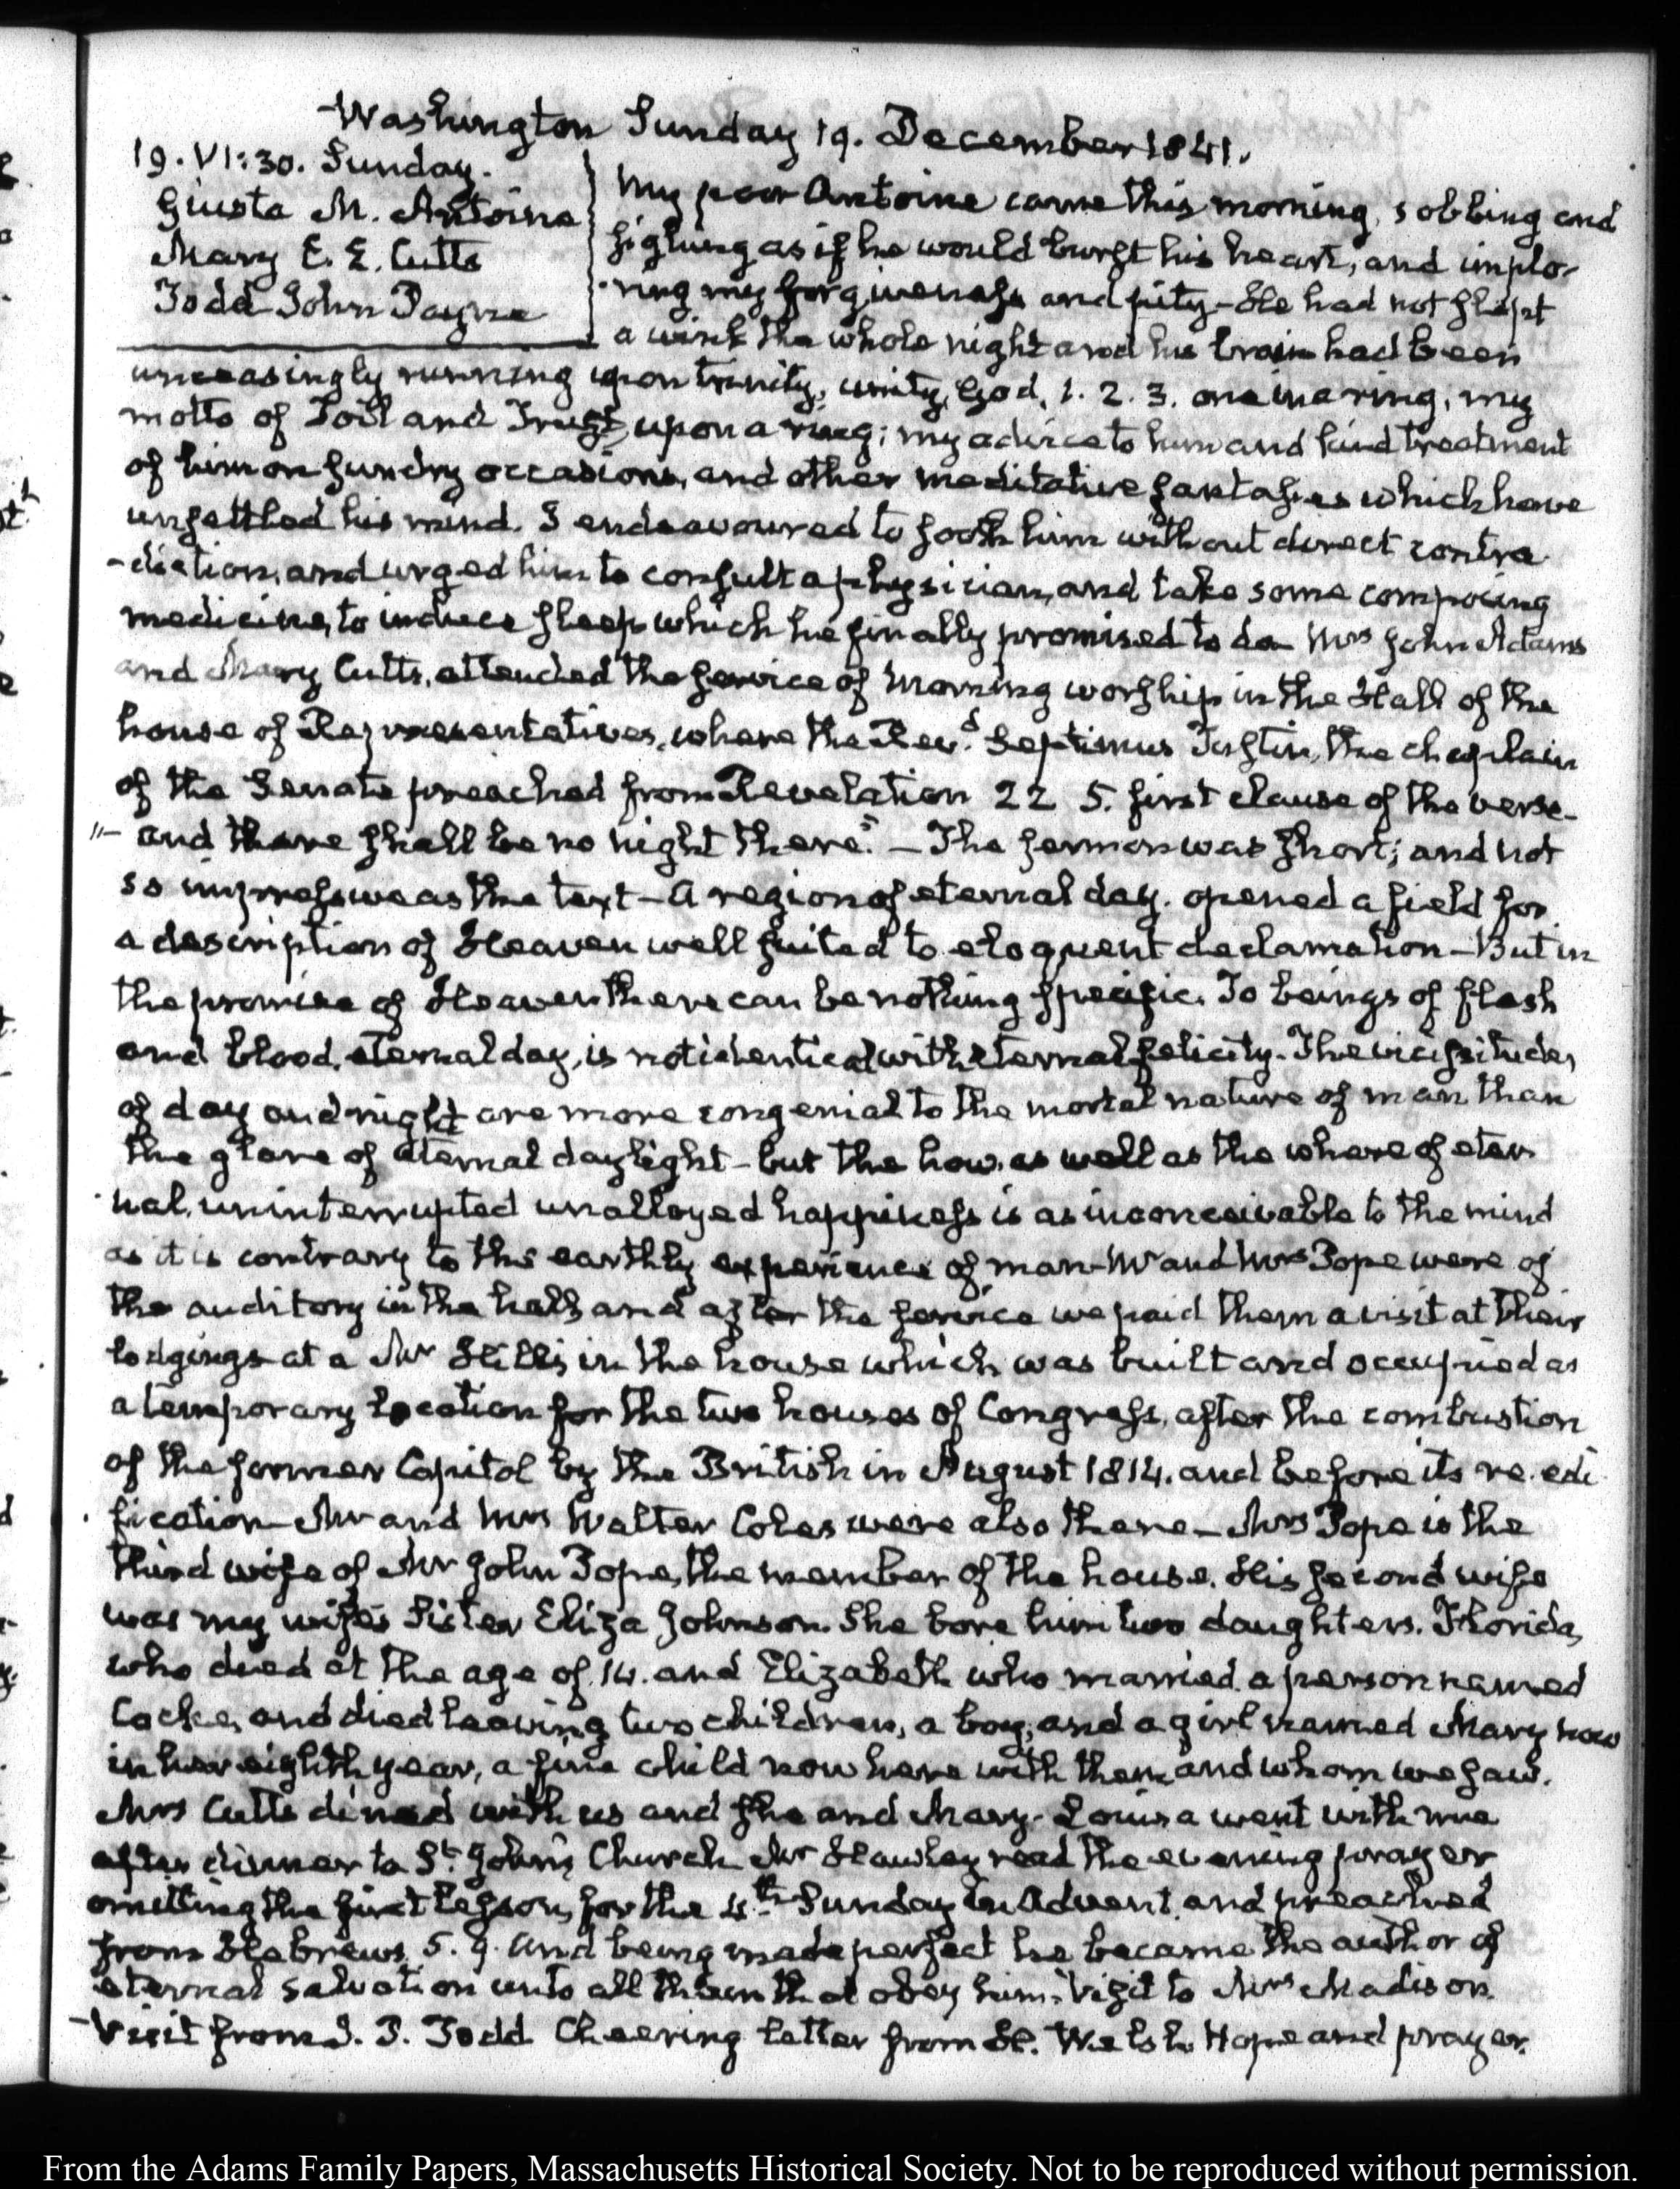 Washington Sunday 19. December 1841.
19. VI:30. Sunday.
Giusta M. Antoine
Mary E. E. Cutts
Todd John Payne
My poor Antoine came this morning, sobbing and
sighing as if he would burst his heart, and implo-
ring my forgiveness and pity – He had not slept
a wink the whole night and his brain had been
unceasingly running upon trinity, unity, God, 1. 2. 3. one in a ring, my
motto of Toil and Trust, upon a ring; my advice to him and kind treatment
of him on sundry occasions, and other meditative fantasies which have
unsettled his mind. I endeavoured to sooth him without direct contra
-diction, and urged him to consult a physician, and take some composing
medicine, to induce sleep which he finally promised to do – Mrs John Adams
and Mary Cutts, attended the service of morning worship in the Hall of the
house of Representatives, where the Revd. Septimus Tustin, the chaplain
of the Senate preached from Revelation 22 5. first clause of the verse–
"– and there shall be no night there." – The sermon was short; and not
so impressive as the text – A region of eternal day. opened a field for
a description of Heaven well suited to eloquent declamation – But in
the promise of Heaven there can be nothing specific. To beings of flesh
and blood, eternal day, is not identical with eternal felicity. The vicissitudes
of day and night are more congenial to the mortal nature of man than
the glare of eternal daylight – but the how, as well as the where of eter
nal, uninterrupted unalloyed happiness is as inconceivable to the mind
as it is contrary to the earthly experience of man – Mr and Mrs Pope were of
the auditory in the hall and after the service we paid them a visit at their
lodgings at a Mr Hill's in the house which was built and occupied as
a temporary location for the two houses of Congress, after the combustion
of the former Capitol by the British in August 1814. and before its re. edi
fication – Mr and Mrs Walter Coles were also there – Mrs Pope is the
third wife of Mr John Pope, the member of the house. His second wife
was my wife's Sister Eliza Johnson. She bore him two daughters. Florida,
who died at the age of 14. and Elizabeth who married a person named
Cocke, and died leaving two children, a boy, and a girl named Mary now
in her eighth year, a fine child now here with them and whom we saw.
Mrs Cutts dined with us and she and Mary-Louisa went with me
after dinner to St. John's Church Mr Hawley read the evening prayer
omitting the first lesson, for the 4th. Sunday in Advent, and preached
from Hebrews 5. 9. And being made perfect he became the author of
eternal salvation unto all them that obey him. Visit to Mrs Madison.
– Visit from J. P. Todd Cheering letter from H. Welsh. Hope and prayer.
From the Adams Family Papers, Massachusetts Historical Society. Not to be reproduced without permission.